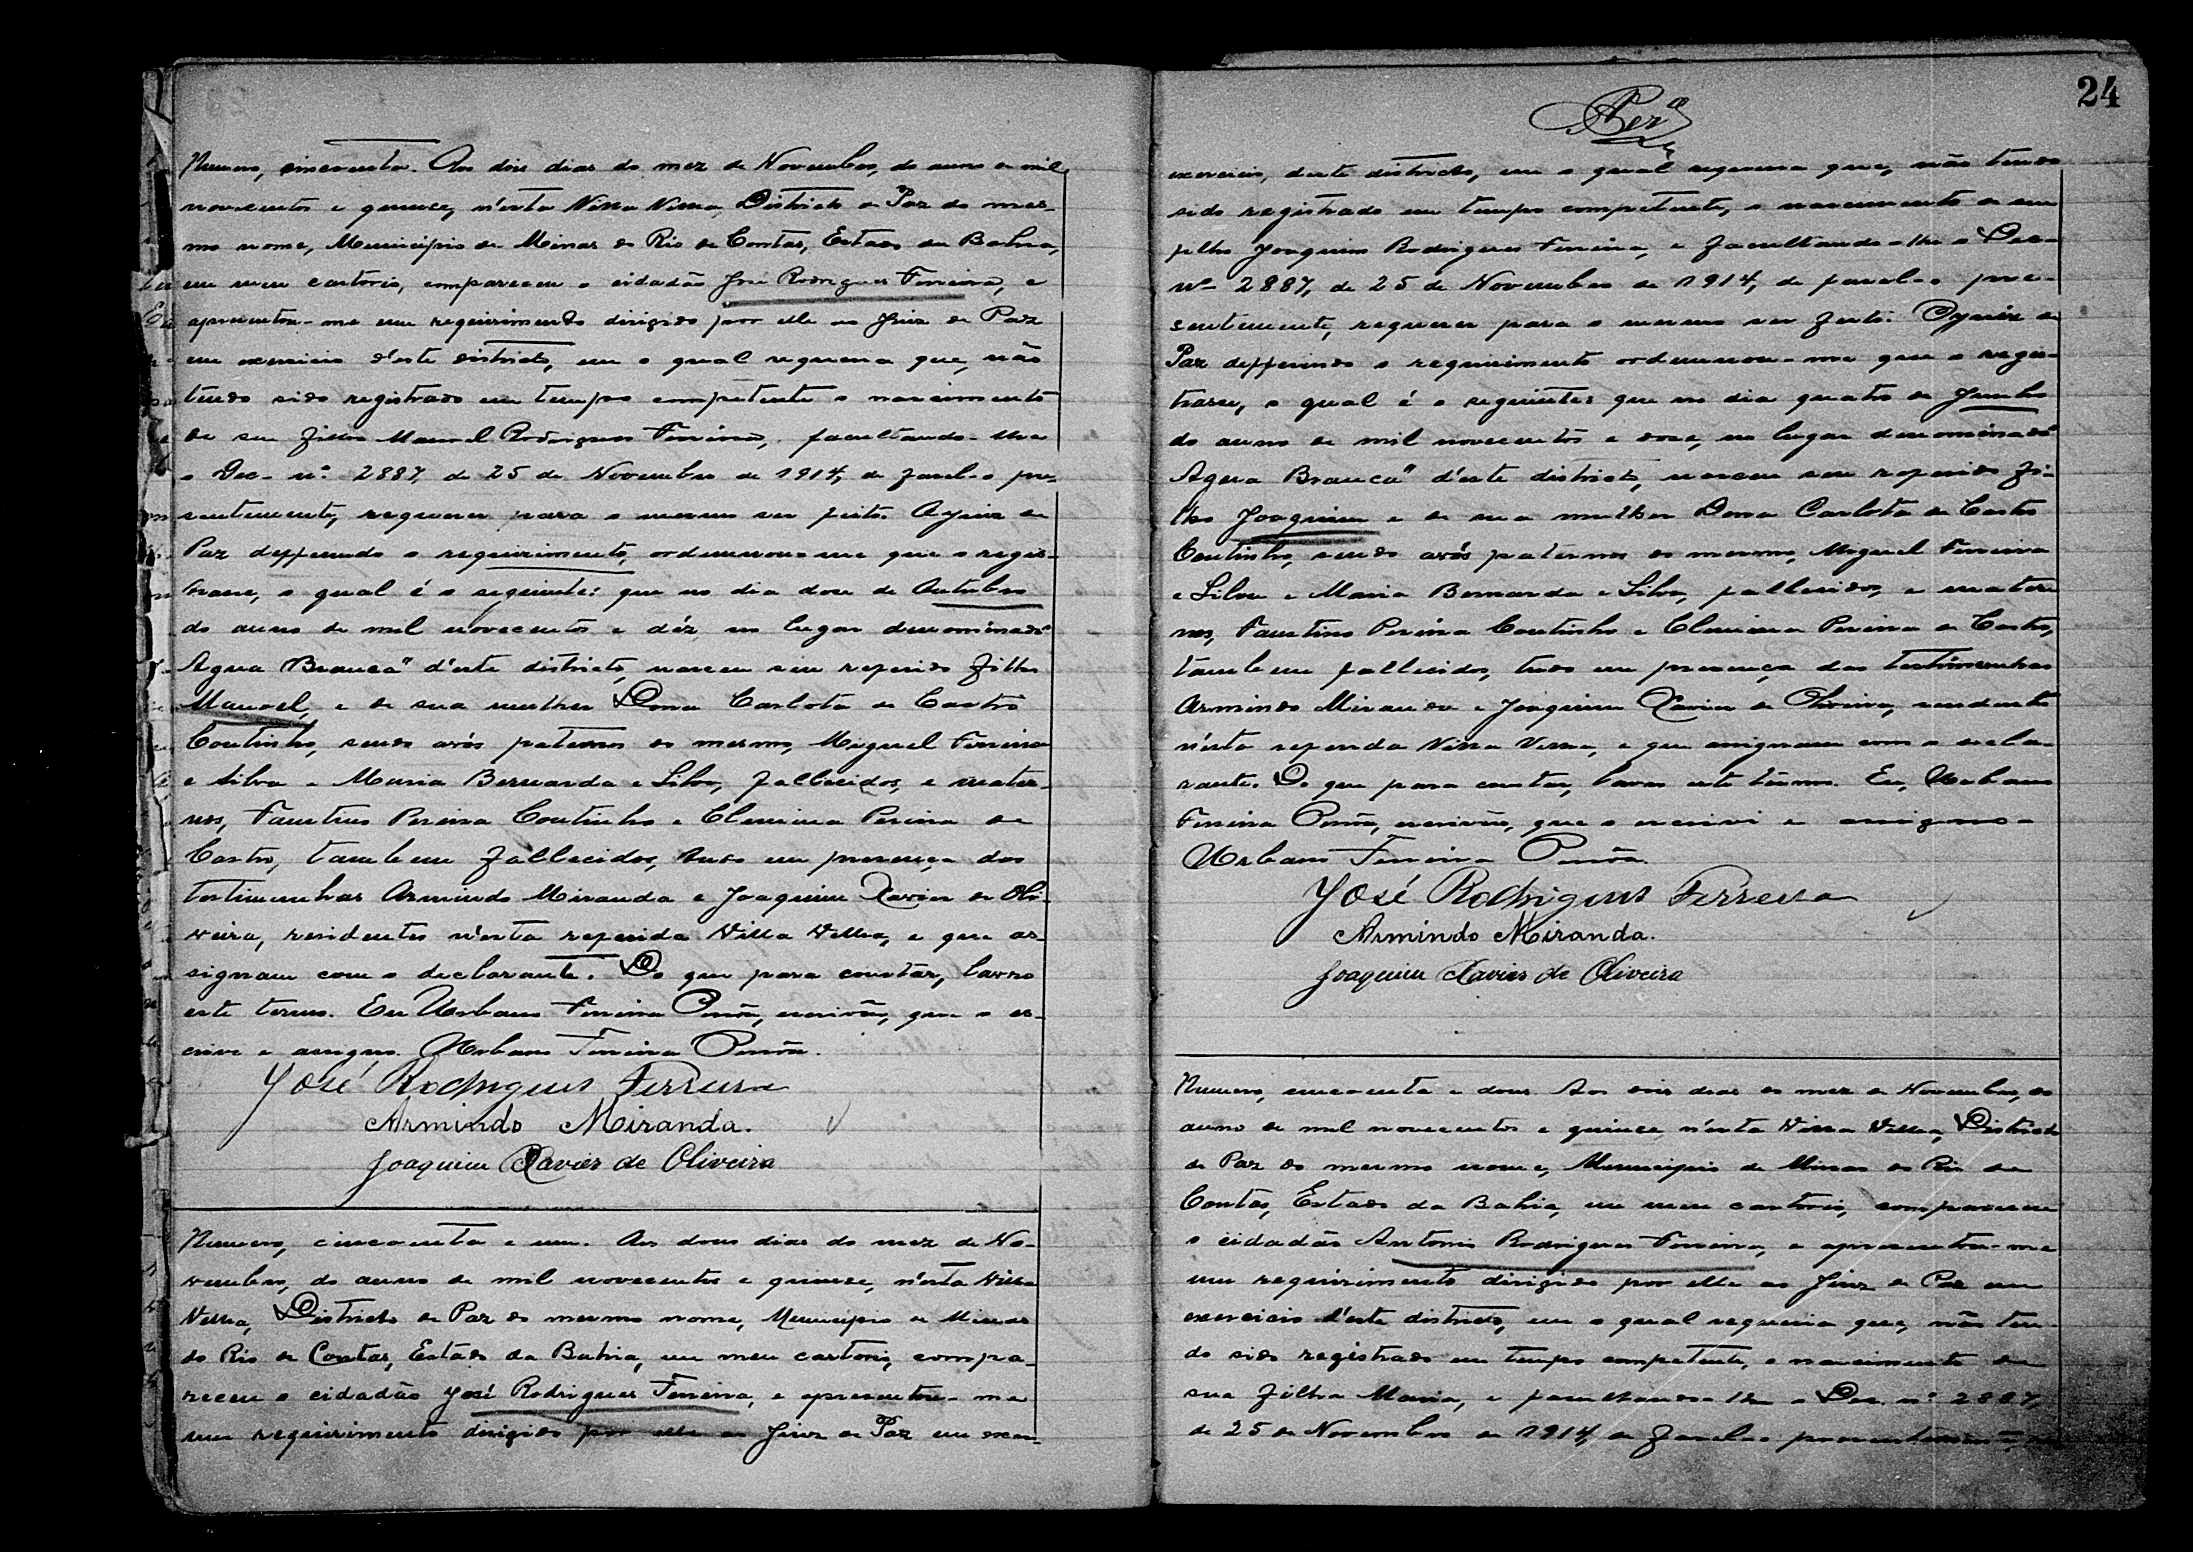 Numero, cincoenta. Aos dois dias do mez de Novembro, do anno de mil
novecentos e quinse, n'esta Villa Velha, Districto de Paz do mes-
mo nome, Municipio de Minas do Rio de Contas, Estado da Bahia,
em meu cartorio, compareceu o cidadão José Rodrigues Ferreira, e
apresentou-me um requirimento dirigido por elle ao Juiz de Paz
em exercicio d'este districto, em o qual requeria que, não
tendo sido registrado em tempo competente o nascimento
de seu filho Manoel Rodrigues Ferreira, facultando-lhe
o Dec. nº 2887, de 25 de Novembro de 1914, de fazel-o pre-
sentemente, requerer para o mesmo ser feito. O Juiz de
Paz defferindo o requirimento, ordennou-me que o regis-
trasse, o qual é o seguinte: que no dia dose de Outubro
do anno de mil novecentos e déz no lugar denominado
Agua Branca" d'este districto, nasceu seu referido filho
Manoel, e de sua mulher Dona Carlota de Castro
Coutinho, sendo avós paternos do mesmo, Miguel Ferreira
e Silva e Maria Bernarda e Silva, fallecidos, e mater-
nos, Faustino Pereira Coutinho e Clemina Pereira de
Castro, tambem fallecidos, tudo em presença das
testimunhas Armindo Miranda e Joaquim Xavier de Oli-
veira, residentes n'esta referida Villa Velha, e que as-
signam com o declarante. Do que para constar, lavro
este termo. Eu Urbano Ferreira, escrivão, que o es-
crivi e assigno. Urbano Ferreira
José Rodrigues Ferreira
Armindo Miranda.
Joaquim Xavier de Oliveira
Numero, cincoenta e um. Aos dous dias do mez de No-
vembro, do anno de mil novecentos e quinse, n'esta Villa
Velha, Districto de Paz do mesmo nome, Municipio de Minas
do Rio de Contas, Estado da Bahia, em meu cartorio, compa-
receu o cidadão José Rodrigues Ferreira, e apresentou-me
um requirimento dirigido por elle ao Juiz de Paz em exer-
24
exercicio, deste districto, em o qual requeria que, não tendo
sido registrado em tempo competente, o nascimento de seu
filho Joaquim Rodrigues Ferreira, e facultando-lhe o Dec.
nº 2887, de 25 de Novembro de 1914, de fazel-o pre-
sentemente, requerer para o mesmo ser feito. O Juiz de
Paz defferindo o requirimento ordennou-me que o regis-
trasse, o qual é o seguinte: que no dia quatro de Junho
do anno de mil novecentos e dose, no lugar denominado
Agua Branca" d'este districto, nasceu seu referido fi-
lho Joaquim e de sua mulher Dona Carlota de Castro
Coutinho, sendo avós paternos do mesmo, Miguel Ferreira
e Silva e Maria Bernarda e Silva, fallecidos, e mater
nos, Faustino Pereira Coutinho e Clemina Pereira de Castro,
tambem fallecidos, tudo em presença das testimunhas
Armindo Miranda e Joaquim Xavier de Oliveira, residente
n'esta referida Villa Velha, e que assignam com o decla-
rante. Do que para constar, lavro este termo. Eu, Urbano
Ferreira, escrivão, que o escrivi e assigno-
Urbano Ferreira
José Rodrigues Ferreira
Armindo Miranda.
Joaquim Xavier de Oliveira
Numero, cincoenta e dous. Aos dois dias do mez de Novembro, do
anno de mil novecentos e quinse n'esta Villa Velha, Districto
de Paz do mesmo nome, Municipio de Minas do Rio de
Contas, Estado da Bahia, em meu cartorio, compareceu
o cidadão Antonio Rodrigues Ferreira, e apresentou-me
um requirimento dirigido por elle ao Juiz de Paz em
exercicio d'este districto, em o qual requeria que, não ten-
do sido registrado em tempo competente, o nascimento de
sua filha Maria, e facultando-lhe o Dec. nº 2887,
de 25 de Novembro de 1914, de fazel-o presentemente,